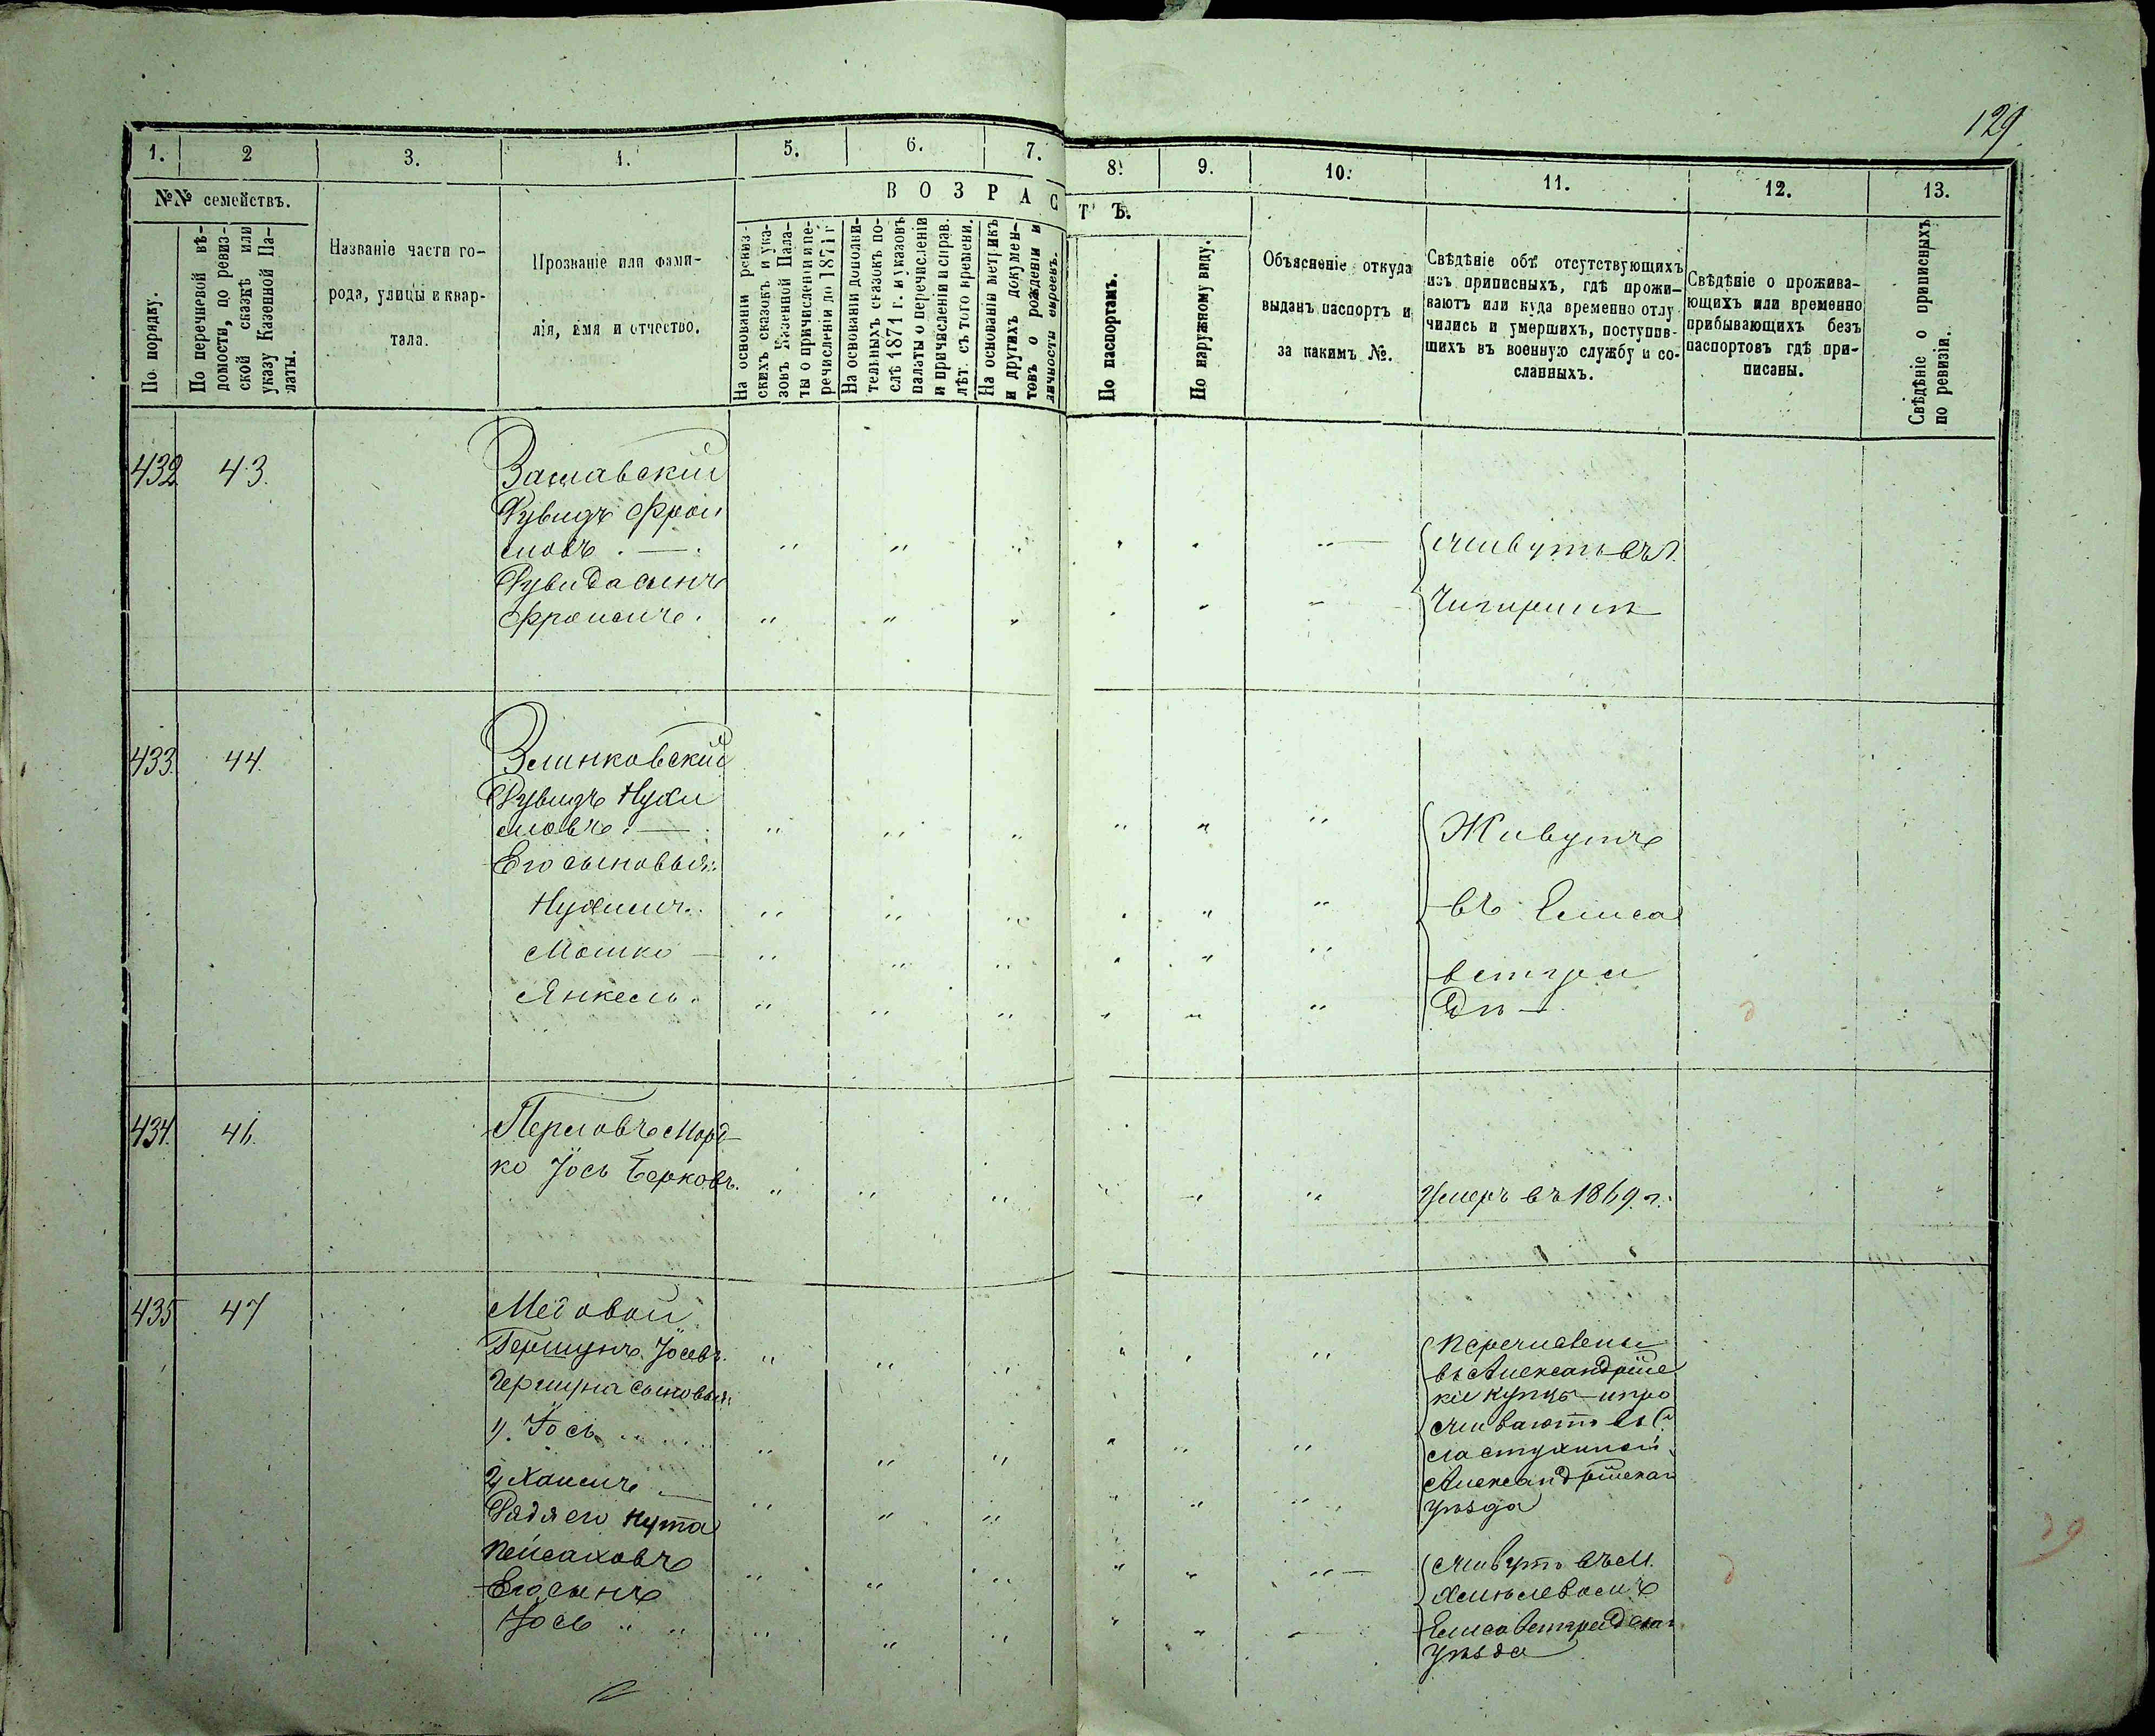 129
1. 2 3. 4. 5. 6. 7. 8. 9. 10. 11. 12. 13.
№№ семействъ.
ВОЗРАСТЪ.
По порядку.
По перечневой вѣ-
домости, по ревиз-
ской сказкѣ или
указу Казенной Па-
латы.
Названіе части го-
рода, улицы и квар-
тала.
Прозваніе или фами-
лія, имя и отчество.
На основаніи ревиз-
скихъ сказокъ и ука-
зовъ Казенной Пала-
ты о причисленіи и пе-
речисленіи до 1871 г.
На основаніи дополни-
тельныхъ сказокъ по-
слѣ 1871 г. и указовъ
палаты о перечисленіи
и причисленіи и справ.
лѣт. съ того времени.
На основаніи метрикъ
и другихъ докумен-
товъ о рожденіи и
личности евреевъ.
По паспортамъ.
По наружному виду.
Объясненіе откуда
выданъ паспортъ и
за какимъ №.
Свѣдѣніе объ отсутствующихъ
изъ приписныхъ, гдѣ прожи-
ваютъ или куда временно отлу-
чились и умершихъ, поступив-
шихъ въ военную службу и со-
сланныхъ.
Свѣдѣніе о прожива-
ющихъ или временно
прибывающихъ безъ
паспортовъ гдѣ при-
писаны.
Свѣдѣніе о приписныхъ
по ревизіи.
432 43.
Заславскій
Дувидъ Фрои
мовъ.
Дувида сынъ
Фроимъ.
живутъ въ г.
Чигиринѣ
433. 44.
Злинковскій
Дувидъ Нухи
мовъ.
Его сыновья:
Нухимъ.
Мошко
Янкель.
Живутъ
въ Елиса
ветгра
дѣ
434. 46.
Перловъ Морд-
ко Іось Берковъ.
Умеръ въ 1869 г.
435 47
Медовой
Гершунъ Іосевъ.
Гершуна сыновья:
1. Іось
2, Хаимъ
Дядя его Нута
Пейсаховъ
Его сынъ
Іось
Перечислены
въ Александрійс
кіе купцы и про
живаютъ въ
Александрійскаго
уѣзда
живутъ въ м.
Хмѣлевомъ
Елисаветградскаго
уѣзда